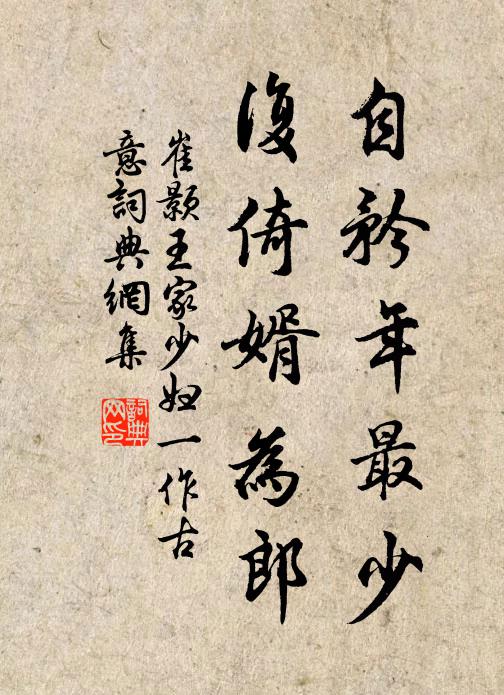 自矜年最少
復倚婿為郎
崔颢王家少妇一作古
意詞典網集
詞典
网印